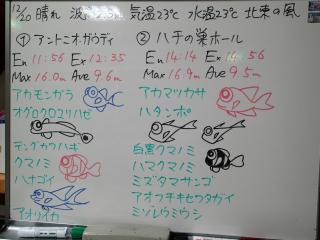 12/20 晴れ 波 気温23℃ 水温23℃ 北東の風
① アントニオ・ガウディ
En 11:56 Ex 12:35
Max 16.0m Ave 9.6m
アカモンガラ
オグロクロユリハゼ
テングカワハギ
クマノミ
ハナゴイ
アオリイカ
② ハチの巣ホール
En 14:14 Ex 56
Max 16.9m Ave 9.5m
アカマツカサ
ハタンポ
白黒クマノミ
ハマクマノミ
ミズタマサンゴ
アオフチキセワタガイ
ミゾレウミウシ